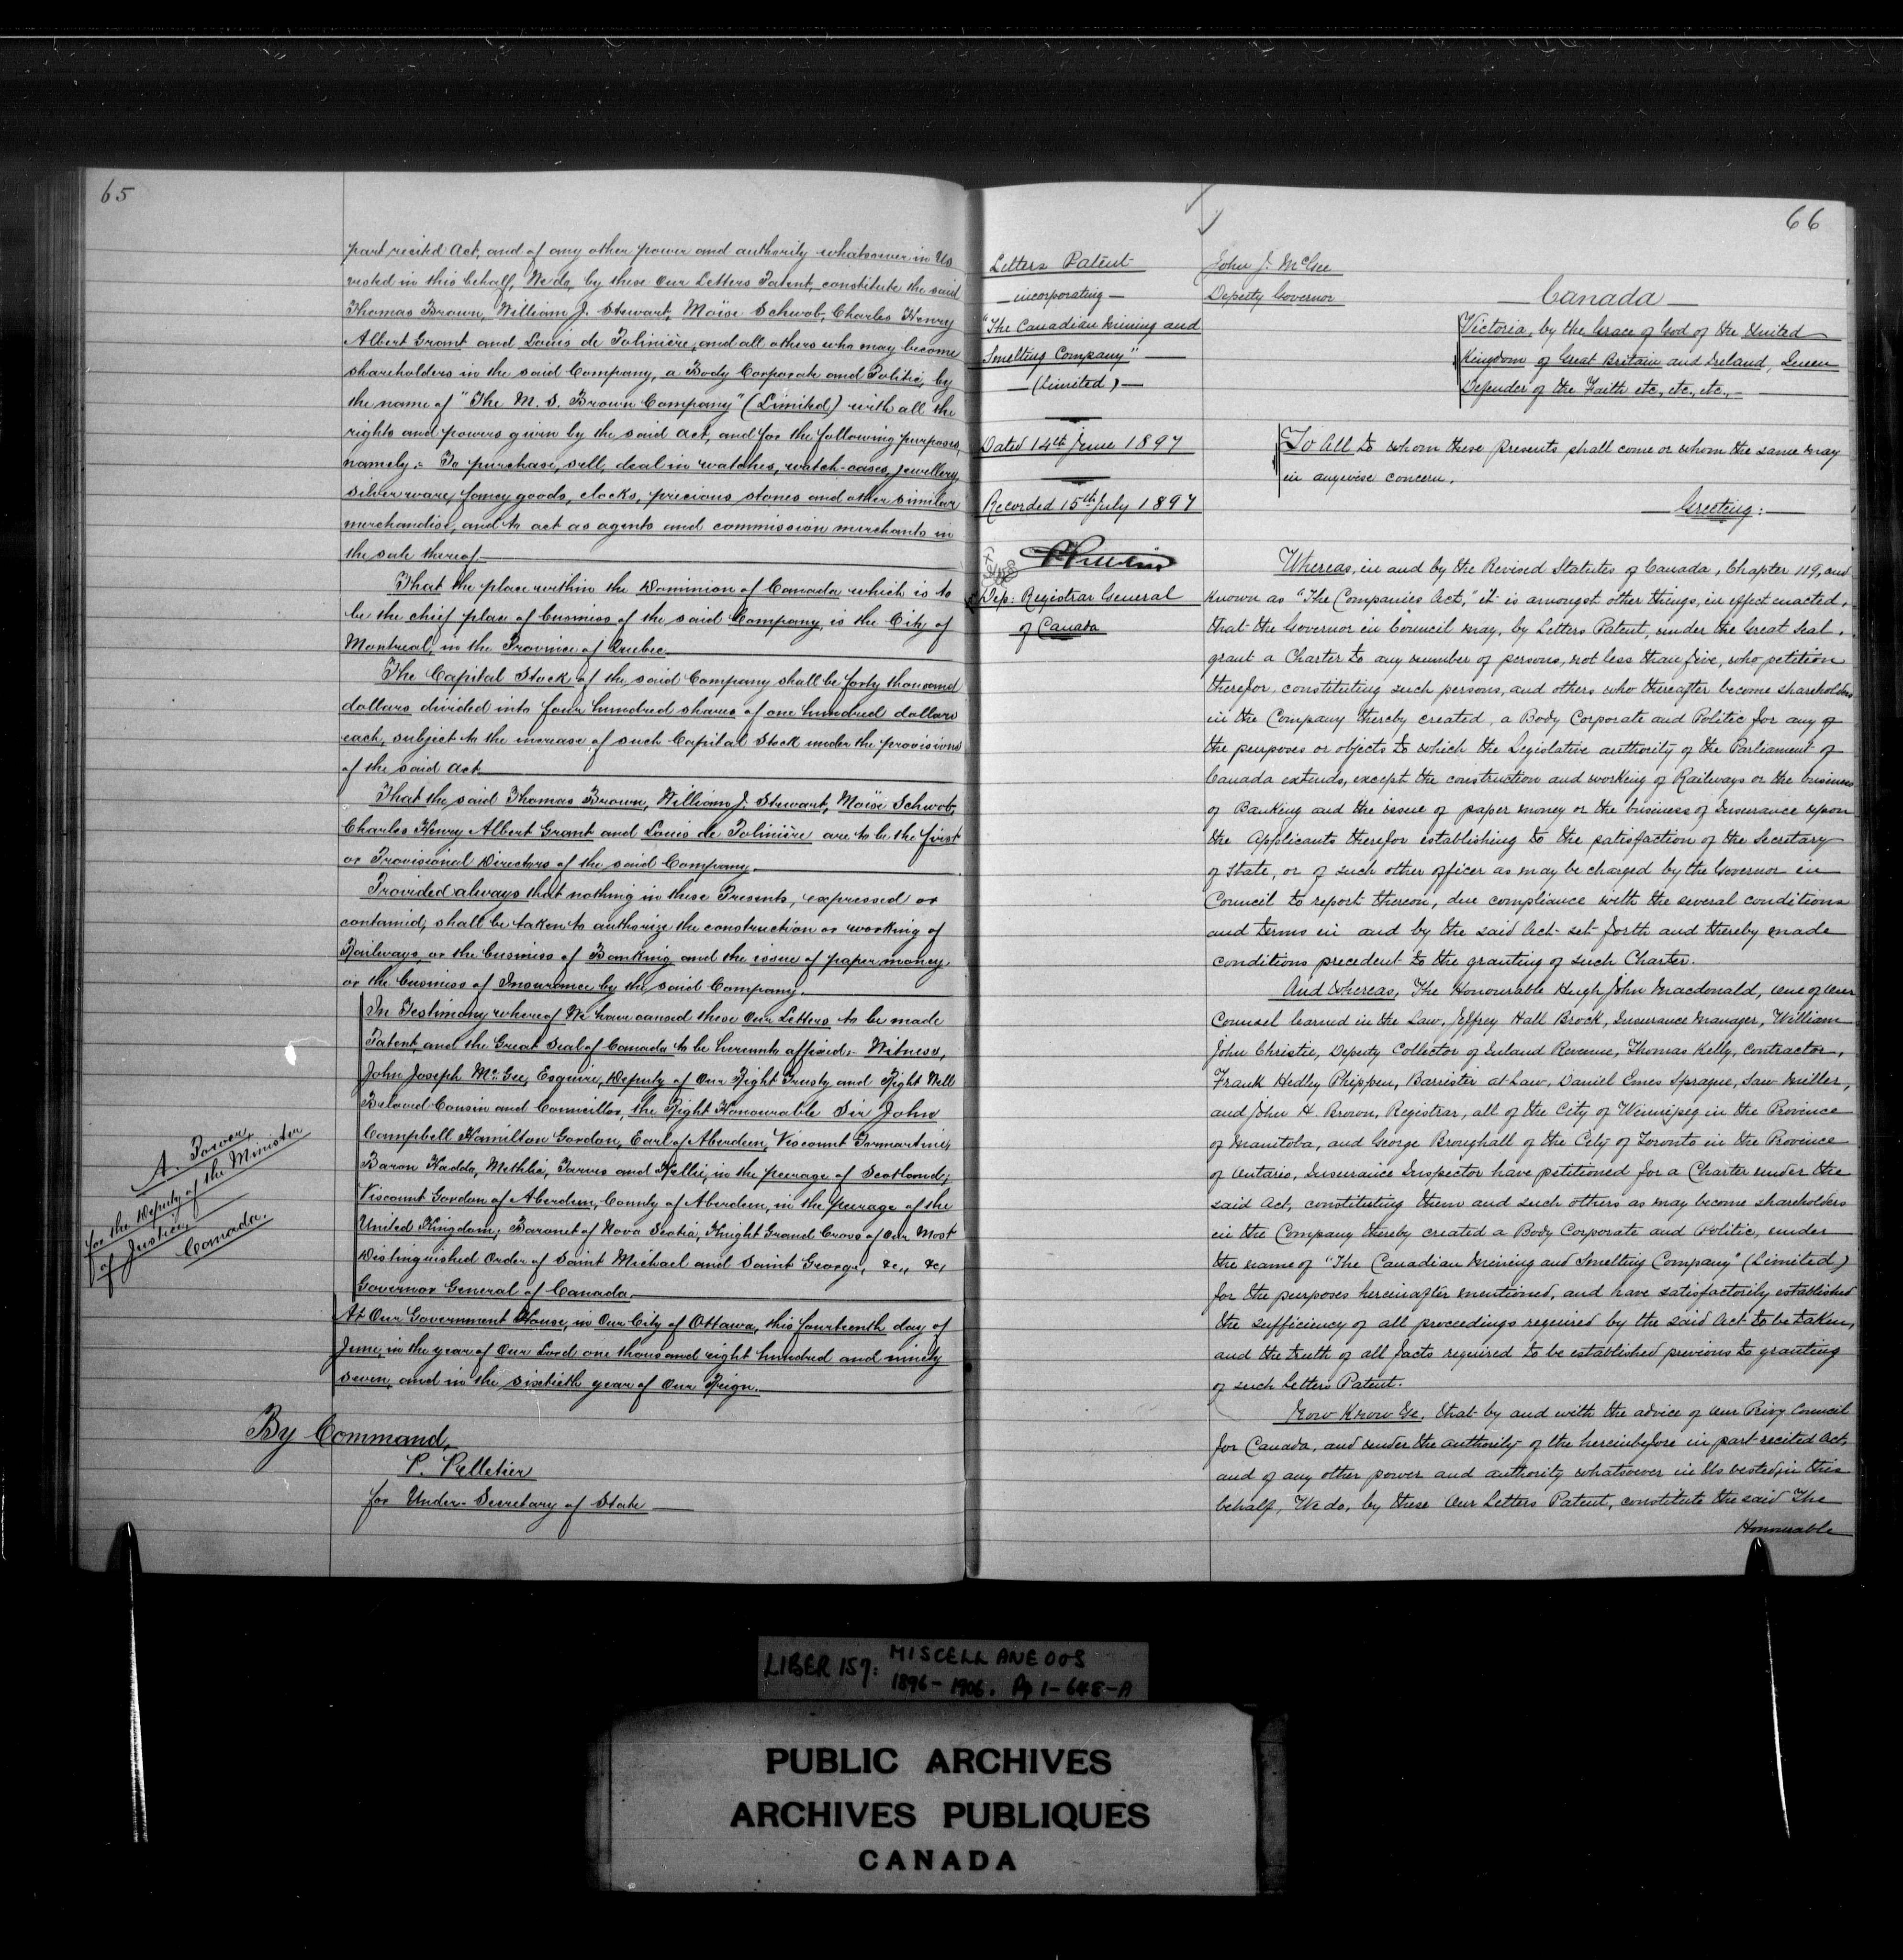 65
part recited Act, and of any other power and authority whatsoever in Us
vested in this behalf, We do, by these Our Letters Patent, constitute the said
Thomas Brown, William J. Stewart, Moïse Schwob, Charles Henry
Albert Grant and Louis de Tolinière, and all others who may become
shareholders in the said Company, a Body Corporate and Politic, by
the name of "The M. S. Brown Company" (Limited) with all the
rights and powers given by the said Act, and for the following purposes,
namely:- To purchase, sell, deal in watches, watch-cases, jewellery,
silverware, fancy goods, clocks, precious stones and other similar
merchandise, and to act as agents and commission merchants in
the sale thereof.
That the place within the Dominion of Canada which is to
be the chief place of business of the said Company, is the City of
Montreal, in the Province of Quebec.
The Capital Stock of the said Company shall be forty thousand
dollars divided into four hundred shares of one hundred dollars
each, subject to the increase of such Capital Stock under the provisions
of the said Act.
That the said Thomas Brown, William J. Stewart, Moïse Schwob,
Charles Henry Albert Grant and Louis de Tolinière are to be the first
or Provisional Directors of the said Company.
Provided always that nothing in these Presents, expressed or
contained, shall be taken to authorize the construction or working of
Railways, or the business of Banking and the issue of paper money,
or the business of Insurance by the said Company.
In Testimony whereof We have caused these Our Letters to be made
Patent, and the Great Seal of Canada to be hereunto affixed:- Witness,
John Joseph McGee, Esquire, Deputy of Our Right Trusty and Right Well
Beloved Cousin and Councillor, the Right Honourable Sir John
Campbell Hamilton Gordon, Earl of Aberdeen, Viscount Formartine,
Baron Haddo, Methlic, Tarves and Kellie, in the peerage of Scotland;
Viscount Gordon of Aberdeen, County of Aberdeen, in the peerage of the
United Kingdom; Baronet of Nova Scotia, Knight Grand Cross of Our Most
Distinguished Order of Saint Michael and Saint George, &c., &c,
Governor General of Canada.
At Our Government House, in Our City of Ottawa, this fourteenth day of
June, in the year of Our Lord one thousand eight hundred and ninety
seven, and in the sixtieth year of Our Reign.
A. Power,
for the Deputy of the Minister
of Justice,
Canada.
By Command,
P. Pelletier
for Under-Secretary of State
66
Letters Patent
incorporating
"The Canadian Mining and
Smelting Company"
(Limited)
Dated 14th June 1897
Recorded 15th July 1897
Dep: Registrar General
of Canada
John J. McGee
Deputy Governor
Canada
Victoria, by the Grace of God of the United
Kingdom of Great Britain and Ireland, Queen
Defender of the Faith etc., etc., etc.,
To All to whom these Presents shall come or whom the same may
in anywise concern.
Greeting:
Whereas, in and by the Revised Statutes of Canada, Chapter 119, and
known as "The Companies Act," it is amongst other things, in effect enacted,
that the Governor in Council may, by Letters Patent, under the Great Seal,
grant a Charter to any number of persons, not less than five, who petition
therefor, constituting such persons, and others who thereafter become shareholders
in the Company thereby created, a Body Corporate and Politic for any of
the purposes or objects to which the Legislative authority of the Parliament of
Canada extends, except the construction and working of Railways or the business
of Banking and the issue of paper money or the business of Insurance upon
the Applicants therefor establishing to the satisfaction of the Secretary
of State, or of such other officer as may be charged by the Governor in
Council to report thereon, due compliance with the several conditions
and terms in and by the said Act set forth and thereby made
conditions precedent to the granting of such Charter.
And Whereas, The Honourable Hugh John Macdonald, one of Our
Counsel learned in the Law, Jeffrey Hall Brock, Insurance Manager, William
John Christie, Deputy Collector of Inland Revenue, Thomas Kelly, Contractor,
Frank Hedley Phippen, Barrister at Law, Daniel Emes Sprague, Saw Miller,
and John H. Brown, Registrar, all of the City of Winnipeg in the Province
of Manitoba, and George Broughall of the City of Toronto in the Province
of Ontario, Insurance Inspector have petitioned for a Charter under the
said Act, constituting them and such others as may become shareholders
in the Company thereby created a Body Corporate and Politic, under
the name of "The Canadian Mining and Smelting Company" (Limited)
for the purposes hereinafter mentioned, and have satisfactorily established
the sufficiency of all proceedings required by the said Act to be taken,
and the truth of all facts required to be established previous to granting
of such Letters Patent.
Now Know Ye, that by and with the advice of Our Privy Council
for Canada, and under the authority of the hereinbefore in part recited Act,
and of any other power and authority whatsoever in Us vested in this
behalf, We do, by these Our Letters Patent, constitute the said The
Honourable
LIBER 157: MISCELLANEOUS
1896-1906. Pp 1-648-A
PUBLIC ARCHIVES
ARCHIVES PUBLIQUES
CANADA